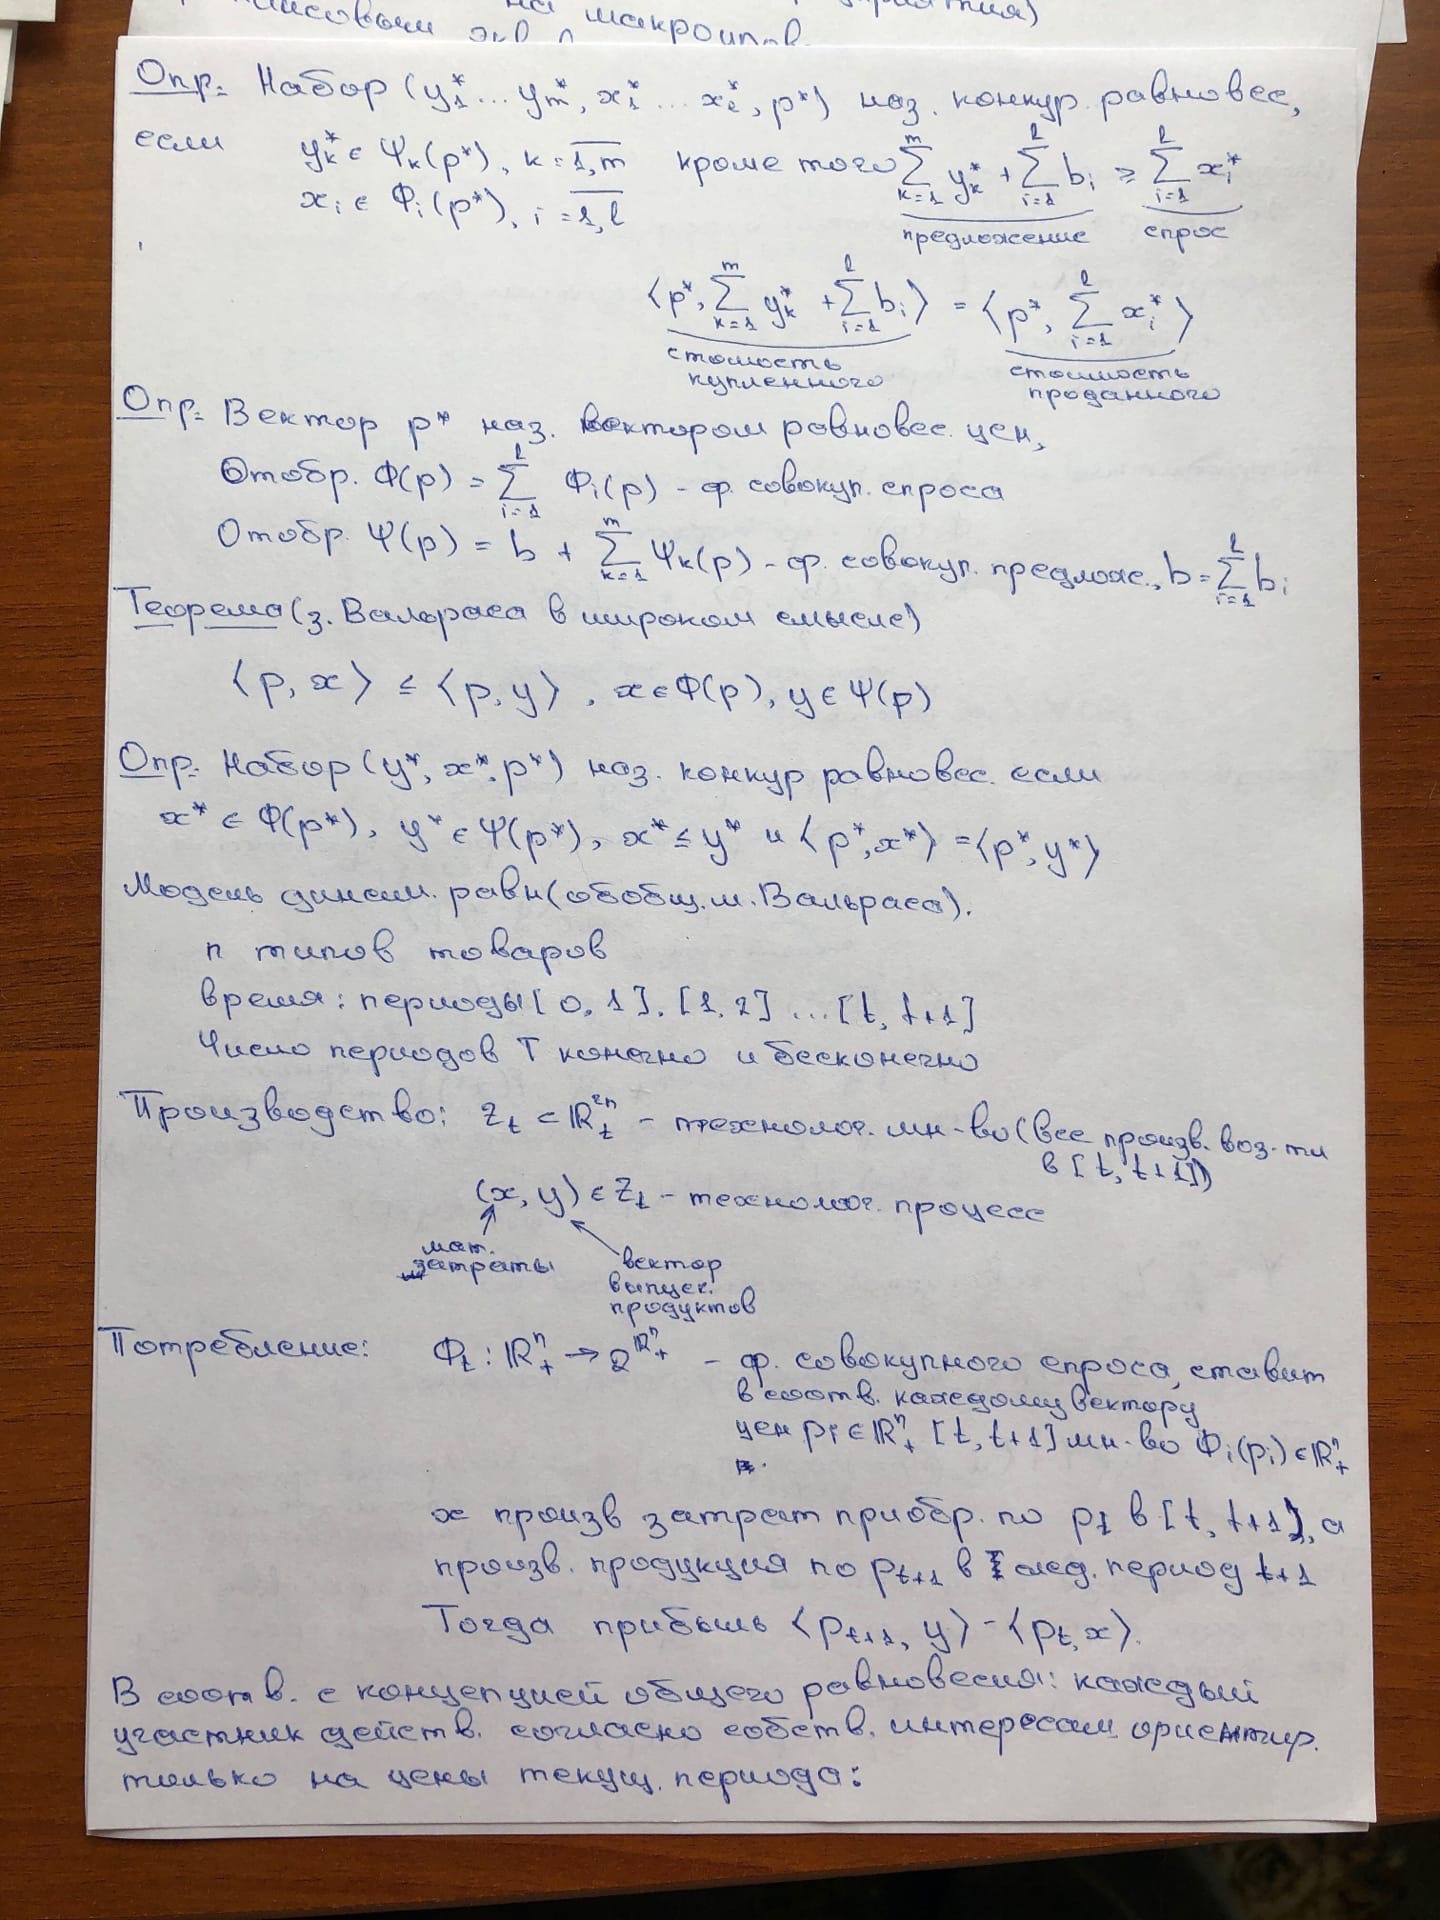 на макроипов.
Опр: Набор (y₁*...yₘ*, x₁*...xₑ*, p*) наз. конкур. равновес,
если yₖ* ∈ Ψₖ(p*), k = 1,m кроме того ∑ₖ₌₁ᵐ yₖ* + ∑ᵢ₌₁ˡ bᵢ ≥ ∑ᵢ₌₁ˡ xᵢ*
xᵢ ∈ Φᵢ(p*), i = 1,l
предложение спрос
⟨p*, ∑ₖ₌₁ᵐ yₖ* + ∑ᵢ₌₁ˡ bᵢ⟩ = ⟨p*, ∑ᵢ₌₁ˡ xᵢ*⟩
стоимость купленного стоимость проданного
Опр: Вектор p* наз. вектором равновес. цен,
Отобр. Φ(p) = ∑ᵢ₌₁ˡ Φᵢ(p) - ф. совокуп. спроса
Отобр. Ψ(p) = b + ∑ₖ₌₁ᵐ Ψₖ(p) - ф. совокуп. предлож., b = ∑ᵢ₌₁ˡ bᵢ
Теорема (з. Вальраса в широком смысле)
⟨p, x⟩ ≤ ⟨p, y⟩, x ∈ Φ(p), y ∈ Ψ(p)
Опр: Набор (y*, x*, p*) наз. конкур равновес. если
x* ∈ Φ(p*), y* ∈ Ψ(p*), x* ≤ y* и ⟨p*, x*⟩ = ⟨p*, y*⟩
Модель динам. равн (обобщ. м. Вальраса).
n типов товаров
время: периоды [0, 1], [1, 2] ... [t, t+1]
Число периодов T конечно и бесконечно
Производство: Zₜ ⊂ ℝₜ²ⁿ - технолог. мн-во (все произв. воз-ти
в [t, t+1])
(x, y) ∈ Zₜ - технолог. процесс
мат. затраты
вектор выпуск. продуктов
Потребление: Φₜ : ℝ₊ⁿ → 2^ℝ₊ⁿ - ф. совокупного спроса, ставит
в соотв. каждому вектору
цен pᵢ ∈ ℝ₊ⁿ [t, t+1] мн-во Φᵢ(pᵢ) ∈ ℝ₊ⁿ
x произв затрат приобр. по pₜ в [t, t+1], а
произв. продукция по pₜ₊₁ в след. период t+1
Тогда прибыль ⟨pₜ₊₁, y⟩ - ⟨pₜ, x⟩.
В соотв. с концепцией общего равновесия: каждый
участник действ. согласно собств. интересам ориентир.
только на цены текущ. периода: